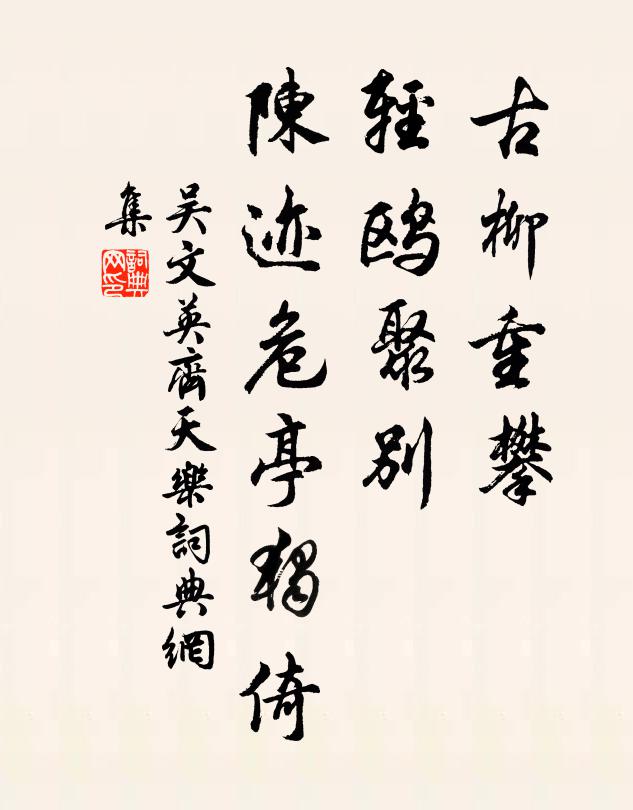 古柳重攀
輕鷗聚別
陳迹危亭獨倚
吴文英齊天樂詞典網
集
詞典
网印